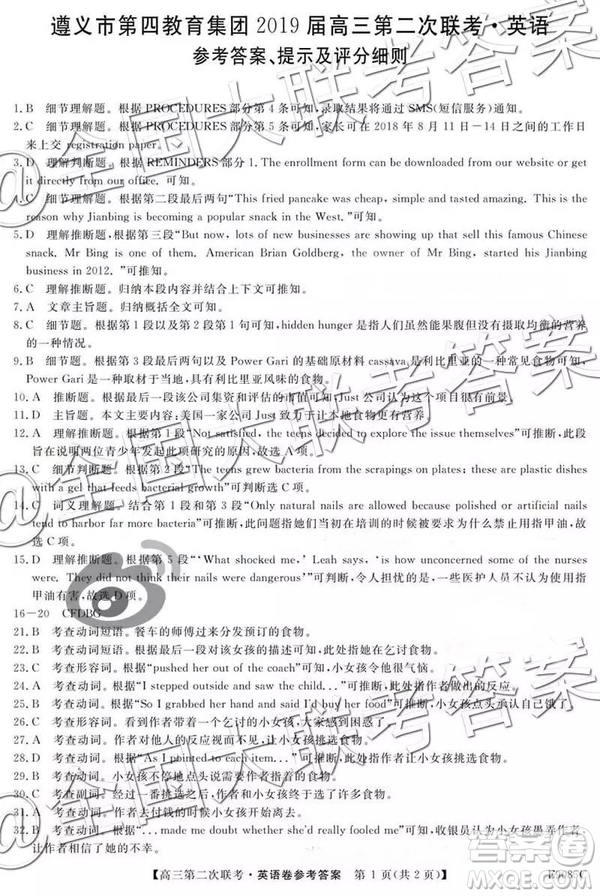 遵义市第四教育集团 2019 届高三第二次联考·英语
参考答案、提示及评分细则
1. B 细节理解题。根据 PROCEDURES 部分第 4 条可知,录取结果将通过 SMS(短信服务)通知。
2. C 细节理解题。根据 PROCEDURES 部分第 5 条可知,家长可在 2018 年 8 月 11 日－14 日之间的工作日
来上交 registration paper。
3. D 理解判断题。根据 REMINDERS 部分 1. The enrollment form can be downloaded from our website or get
it directly from our office. 可知。
4. C 细节理解题。根据第二段最后两句“This fried pancake was cheap, simple and tasted amazing. This is the
reason why Jianbing is becoming a popular snack in the West.”可知。
5. D 理解推断题。根据第三段“But now, lots of new businesses are showing up that sell this famous Chinese
snack. Mr Bing is one of them. American Brian Goldberg, the owner of Mr Bing, started his Jianbing
business in 2012. ”可推知。
6. C 理解推断题。归纳本段内容并结合上下段可推知。
7. A 文章主旨题。归纳概括全文可知。
8. C 细节理解题。根据第 1 段以及第 2 段第 1 句可知,hidden hunger 是指人们虽然能吃能量果腹但没有摄取均衡的营养
的一种情况。
9. B 细节题。根据第 3 段最后两句以及 Power Gari 的基础原材料 cassava 是利比里亚的一种常见食物可知,
Power Gari 是一种取材于当地,具有利比里亚风味的食物。
10. A 推断题。根据最后一段该公司集资和评估的市值可知,Just 公司认为这代表了
11. D 主旨题。本文主要内容是:美国一家公司 Just 致力于让本地食物更有营养。
12. A 理解推断题。根据第 1 段“Not satisfied, the teens decided to explore the issue themselves”可知,此段
旨在说明两位青少年发起此项研究的原因。
13. C 细节判断题。根据第 2 段“The teens grew bacteria from the scrapings on plates; these are plastic dishes
with a gel that feeds bacterial growth”可判断选 C 项。
14. C 词义理解题。结合第 1 段和第 3 段“Only natural nails and those with standard nail polish
tend to harbor far more bacteria”可推断出,她们知道了她们当初在培训的时候被要求为什么禁止使用指甲油,故
选 C 项。
15. D 理解推断题。根据第 5 段“‘What shocked me,’ Leah says, ‘is how unconcerned some of the nurses
were. They did not think their nails were dangerous’”可判断,她很担忧的是:一些医护人员不认为使用指
甲油有害。故选 D 项。
16－20 CFDBG
21. B 考查动词短语。餐车的师傅过来分发预订的食物。
22. C 考查动词。根据最后一段对该女孩的描述可知,她在乞讨食物。
23. C 考查形容词。根据“pushed her out of the coach”可知,小女孩令他很气恼。
24. A 考查动词。根据“I stepped outside and saw the child...”可推断,此处指作者做出的反应。
25. B 考查动词。根据“So I grabbed her hand and said I'd buy her food”可推断,此处指作者阻止小女孩离开。
26. C 考查形容词。看到作者带着一个乞讨的小女孩,大家感到了困惑。
27. A 考查动词。作者对他人的反应视而不见,让小女孩挑选食物。
28. D 考查动词。根据“As I pointed to each item...”可推断,此处指作者让小女孩挑选食物。
29. B 考查动词。小女孩不停地点头说她需要作者指向的食物。
30. C 考查副词。在经过一番挑选之后,作者给小女孩买了许多食物。
31. A 考查动词。此处指作者付钱。
32. B 考查动词。根据“...made me doubt whether she'd really finally followed me”可知,小女孩的奶奶出现了。
【高三第二次联考·英语卷参考答案 第 1 页(共 2 页)】
E9085C
@全国大联考答案